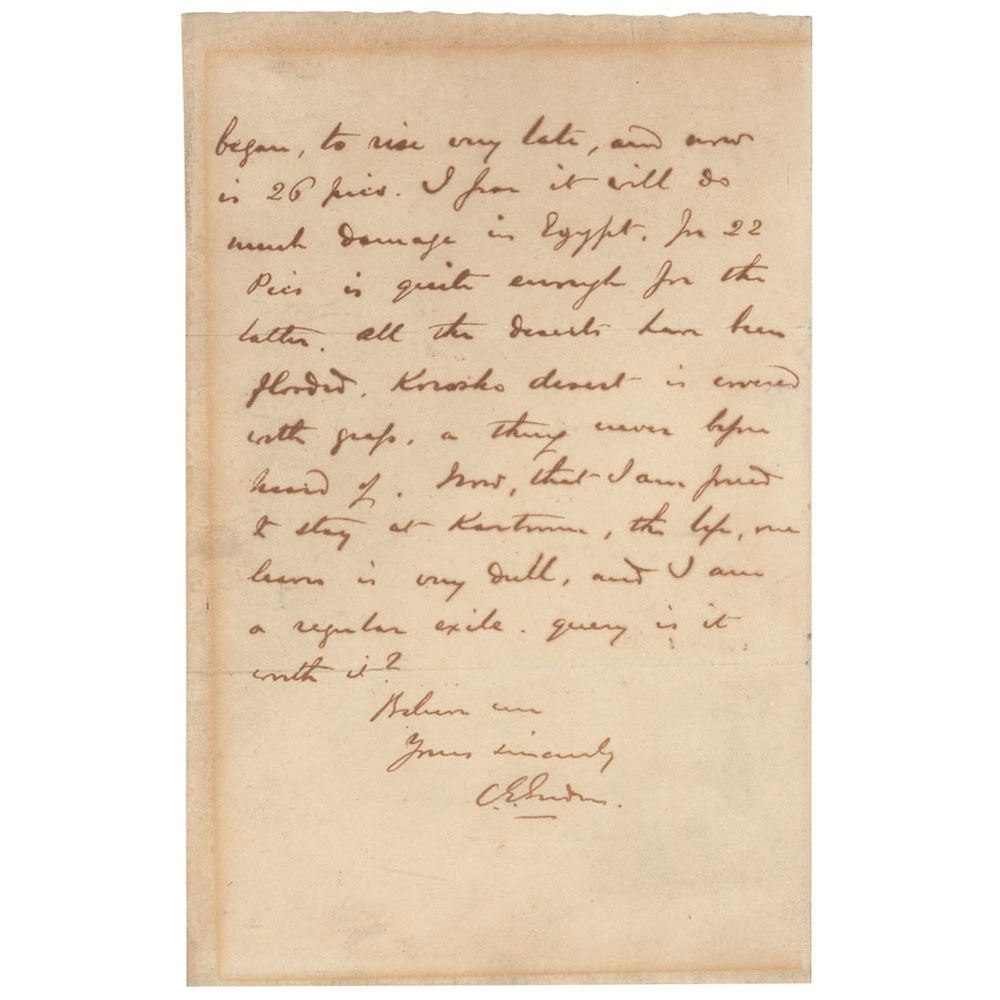 began, to rise very late, and now
is 26 pics. I fear it will do
much damage in Egypt, for 22
Pics is quite enough for the
latter. All the deserts have been
flooded. Korosko desert is covered
with grass, a thing never before
heard of. Now, that I am forced
to stay at Kartoum, the life, one
leads is very dull, and I am
a regular exile. query is it
worth it?
Believe me
Yours sincerely
C.E.Gordon.